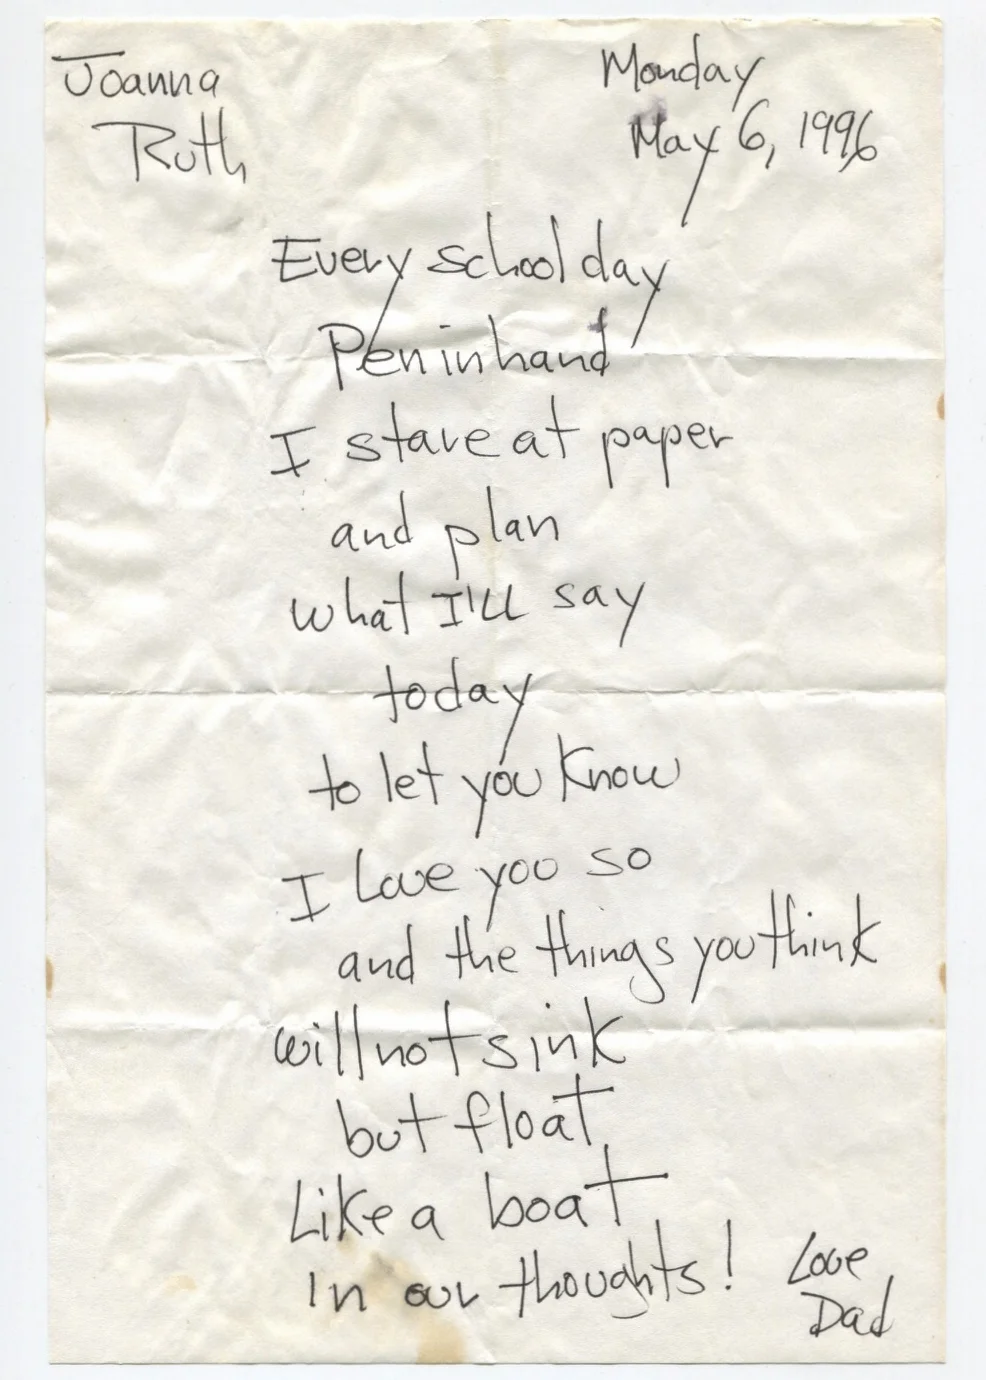 Joanna
Ruth
Monday
May 6, 1996
Every school day
Pen in hand
I stare at paper
and plan
what I'll say
today
to let you know
I Love you so
and the things you think
will not sink
but float
Like a boat
In our thoughts!
Love,
Dad